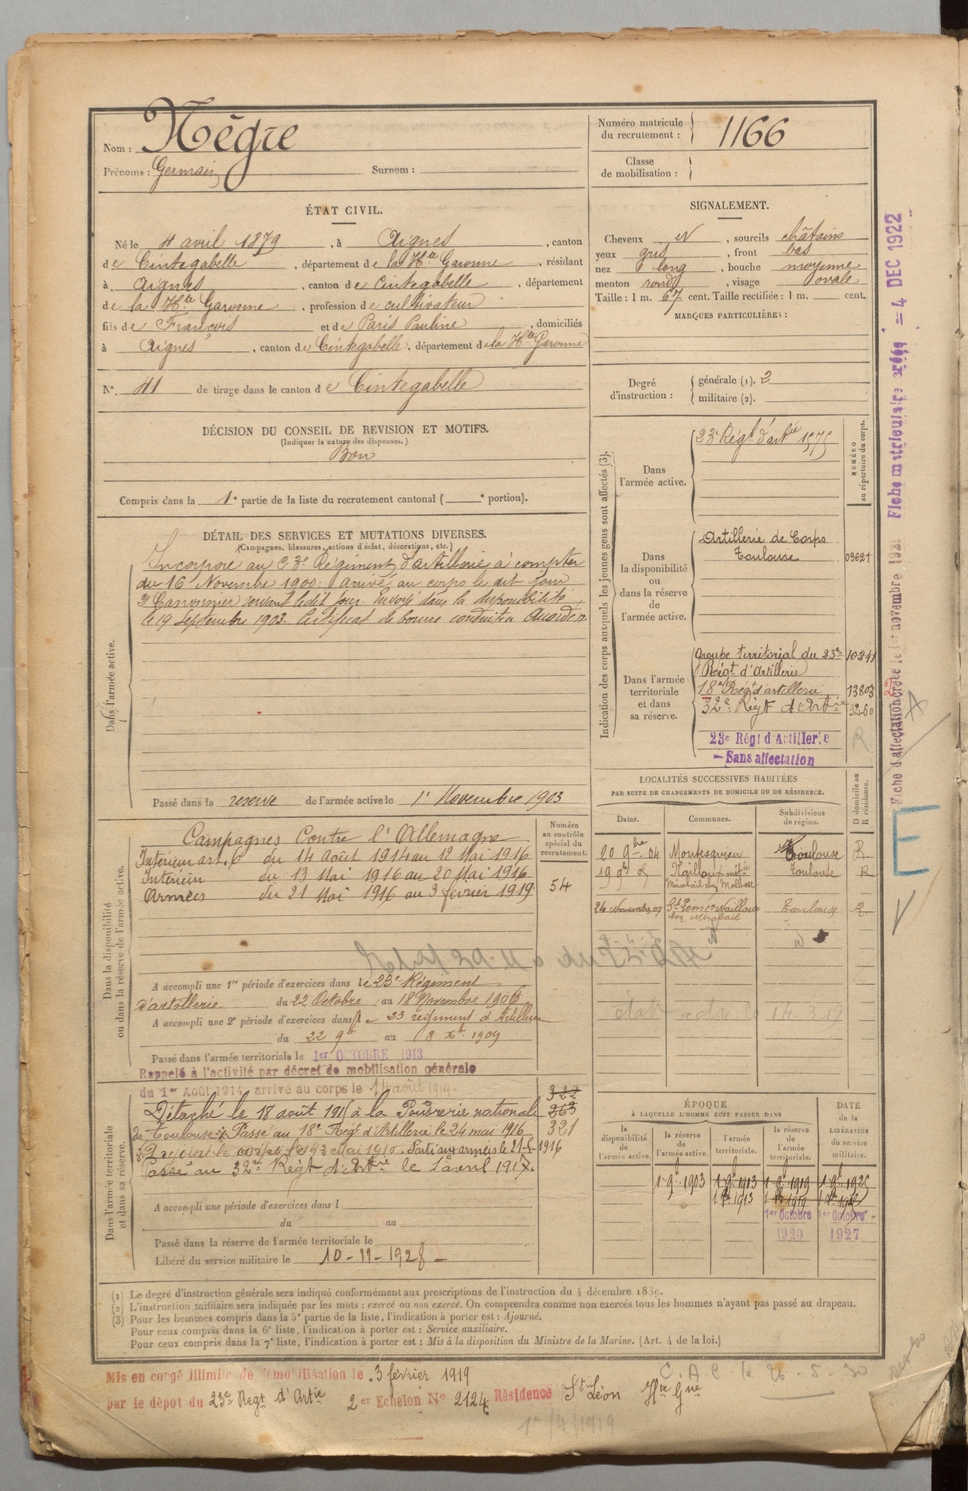 Nom : Nègre
Prénoms : Germain Surnom :
Numéro matricule du recrutement : 1166
Classe de mobilisation :
ÉTAT CIVIL.
Né le 4 avril 1879, à Aignes, canton
de Cintegabelle, département de la Hte Garonne, résidant
à Aignes, canton de Cintegabelle, département
de la Hte Garonne, profession de cultivateur
fils de François et de Paris Pauline, domiciliés
à Aignes, canton de Cintegabelle, département de la Hte Garonne
N° 41 de tirage dans le canton de Cintegabelle
DÉCISION DU CONSEIL DE REVISION ET MOTIFS.
(Indiquer la nature des dispenses.)
Bon
Compris dans la 1e partie de la liste du recrutement cantonal ( e portion).
SIGNALEMENT.
Cheveux N, sourcils châtains
yeux gris, front bas
nez long, bouche moyenne
menton rond, visage ovale
Taille : 1 m. 67 cent. Taille rectifiée : 1 m. cent.
MARQUES PARTICULIÈRES :
Degré d'instruction : générale (1). 2
militaire (2).
DÉTAIL DES SERVICES ET MUTATIONS DIVERSES.
(Campagnes, blessures, actions d'éclat, décorations, etc.)
Dans l'armée active.
Incorporé au 23e Régiment d'artillerie à compter
du 16 Novembre 1900. arrivé au corps le dit jour
2e Canonnier servant ledit jour Envoyé dans la disponibilité
le 19 Septembre 1903. Certificat de bonne conduite Accordé
Passé dans la reserve de l'armée active le 1er Novembre 1903
Indication des corps auxquels les jeunes gens sont affectés (3).
NUMÉRO au répertoire du corps.
Dans l'armée active.
23e Régt d'artie
Dans la disponibilité ou dans la réserve de l'armée active.
Artillerie de Corps
Toulouse
Dans l'armée territoriale et dans sa réserve.
Groupe territorial du 23e
Régt d'Artillerie
18e Régt d'artillerie 13803
32e Régt d'Artie
23e Régt d'Artillerie
Sans affectation
Fiche matriculaire créée = 4 DEC 1922
LOCALITÉS SUCCESSIVES HABITÉES
PAR SUITE DE CHANGEMENTS DE DOMICILE OU DE RÉSIDENCE.
Dates. Communes. Subdivisions de région. D domicile ou R résidence.
20 9bre 04 Montesquieu Toulouse R
Toulouse R
Toulouse R
Dans la disponibilité ou dans la réserve de l'armée active.
Numéro au contrôle spécial du recrutement.
54
Campagnes Contre l'Allemagne
Intérieur du 14 Août 1914 au 12 Mai 1916
Intérieur du 13 Mai 1916 au 20 Mai 1916
Armées du 21 Mai 1916 au 3 fevrier 1919
A accompli une 1re période d'exercices dans le 23e Régiment
d'artillerie du 22 Octobre au 18 Novembre 1906
A accompli une 2e période d'exercices dans le 23 régiment d'Artillerie
du 22 9bre au 8 Xbre 1909
Passé dans l'armée territoriale le 1er OCTOBRE 1913
Rappelé à l'activité par décret de mobilisation générale
du 1er Août 1914, arrivé au corps le 14 août 1914.
Dans l'armée territoriale et dans sa réserve.
322
263
321
Détaché le 18 août 1915 à la Poudrerie nationale
de Toulouse. Passé au 18e Régt d'Artillerie le 24 mai 1916
Passé au 32e Régt d'Artie le 1er avril 1917.
A accompli une période d'exercices dans l
du au
Passé dans la réserve de l'armée territoriale le
Libéré du service militaire le 10-11-1928
ÉPOQUE
À LAQUELLE L'HOMME DOIT PASSER DANS
DATE de la LIBÉRATION du service militaire.
la disponibilité de l'armée active. la réserve de l'armée active. l'armée territoriale. la réserve de l'armée territoriale.
1 9bre 1903 1 9bre 1913 1 9bre 1919 1 9bre 1925
1er Octobre 1er Octobre
1920 1927
(1) Le degré d'instruction générale sera indiqué conformément aux prescriptions de l'instruction du 4 décembre 1889.
(2) L'instruction militaire sera indiquée par les mots : exercé ou non exercé. On comprendra comme non exercés tous les hommes n'ayant pas passé au drapeau.
(3) Pour les hommes compris dans la 5e partie de la liste, l'indication à porter est : Ajourné.
Pour ceux compris dans la 6e liste, l'indication à porter est : Service auxiliaire.
Pour ceux compris dans la 7e liste, l'indication à porter est : Mis à la disposition du Ministre de la Marine. (Art. 4 de la loi.)
Mis en congé illimité de démobilisation le 3 février 1919
par le dépôt du 23e Régt d'Artie 2er Echelon N° 2124 Résidence St Léon Hte Gne
C.A.C. le 26-5-30